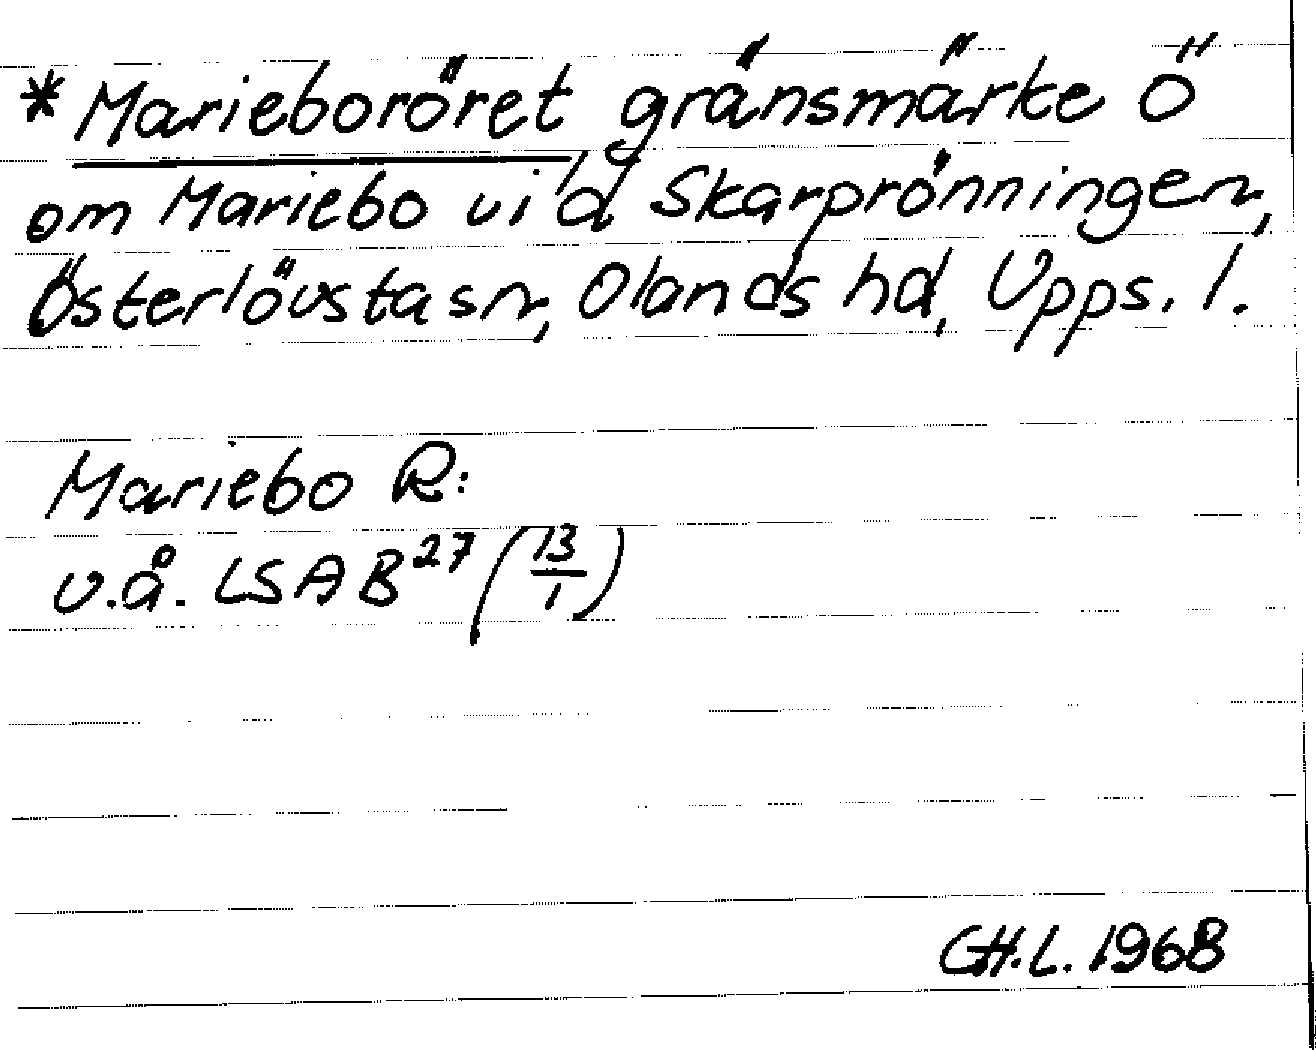 *Marieboröret gränsmärke Ö
om Mariebo vid Skarprönningen,
Österlövsta sn, Olands hd, Upps. l.
Mariebo R:
u.å. LSA B27 (13/1)
G.H.L. 1968